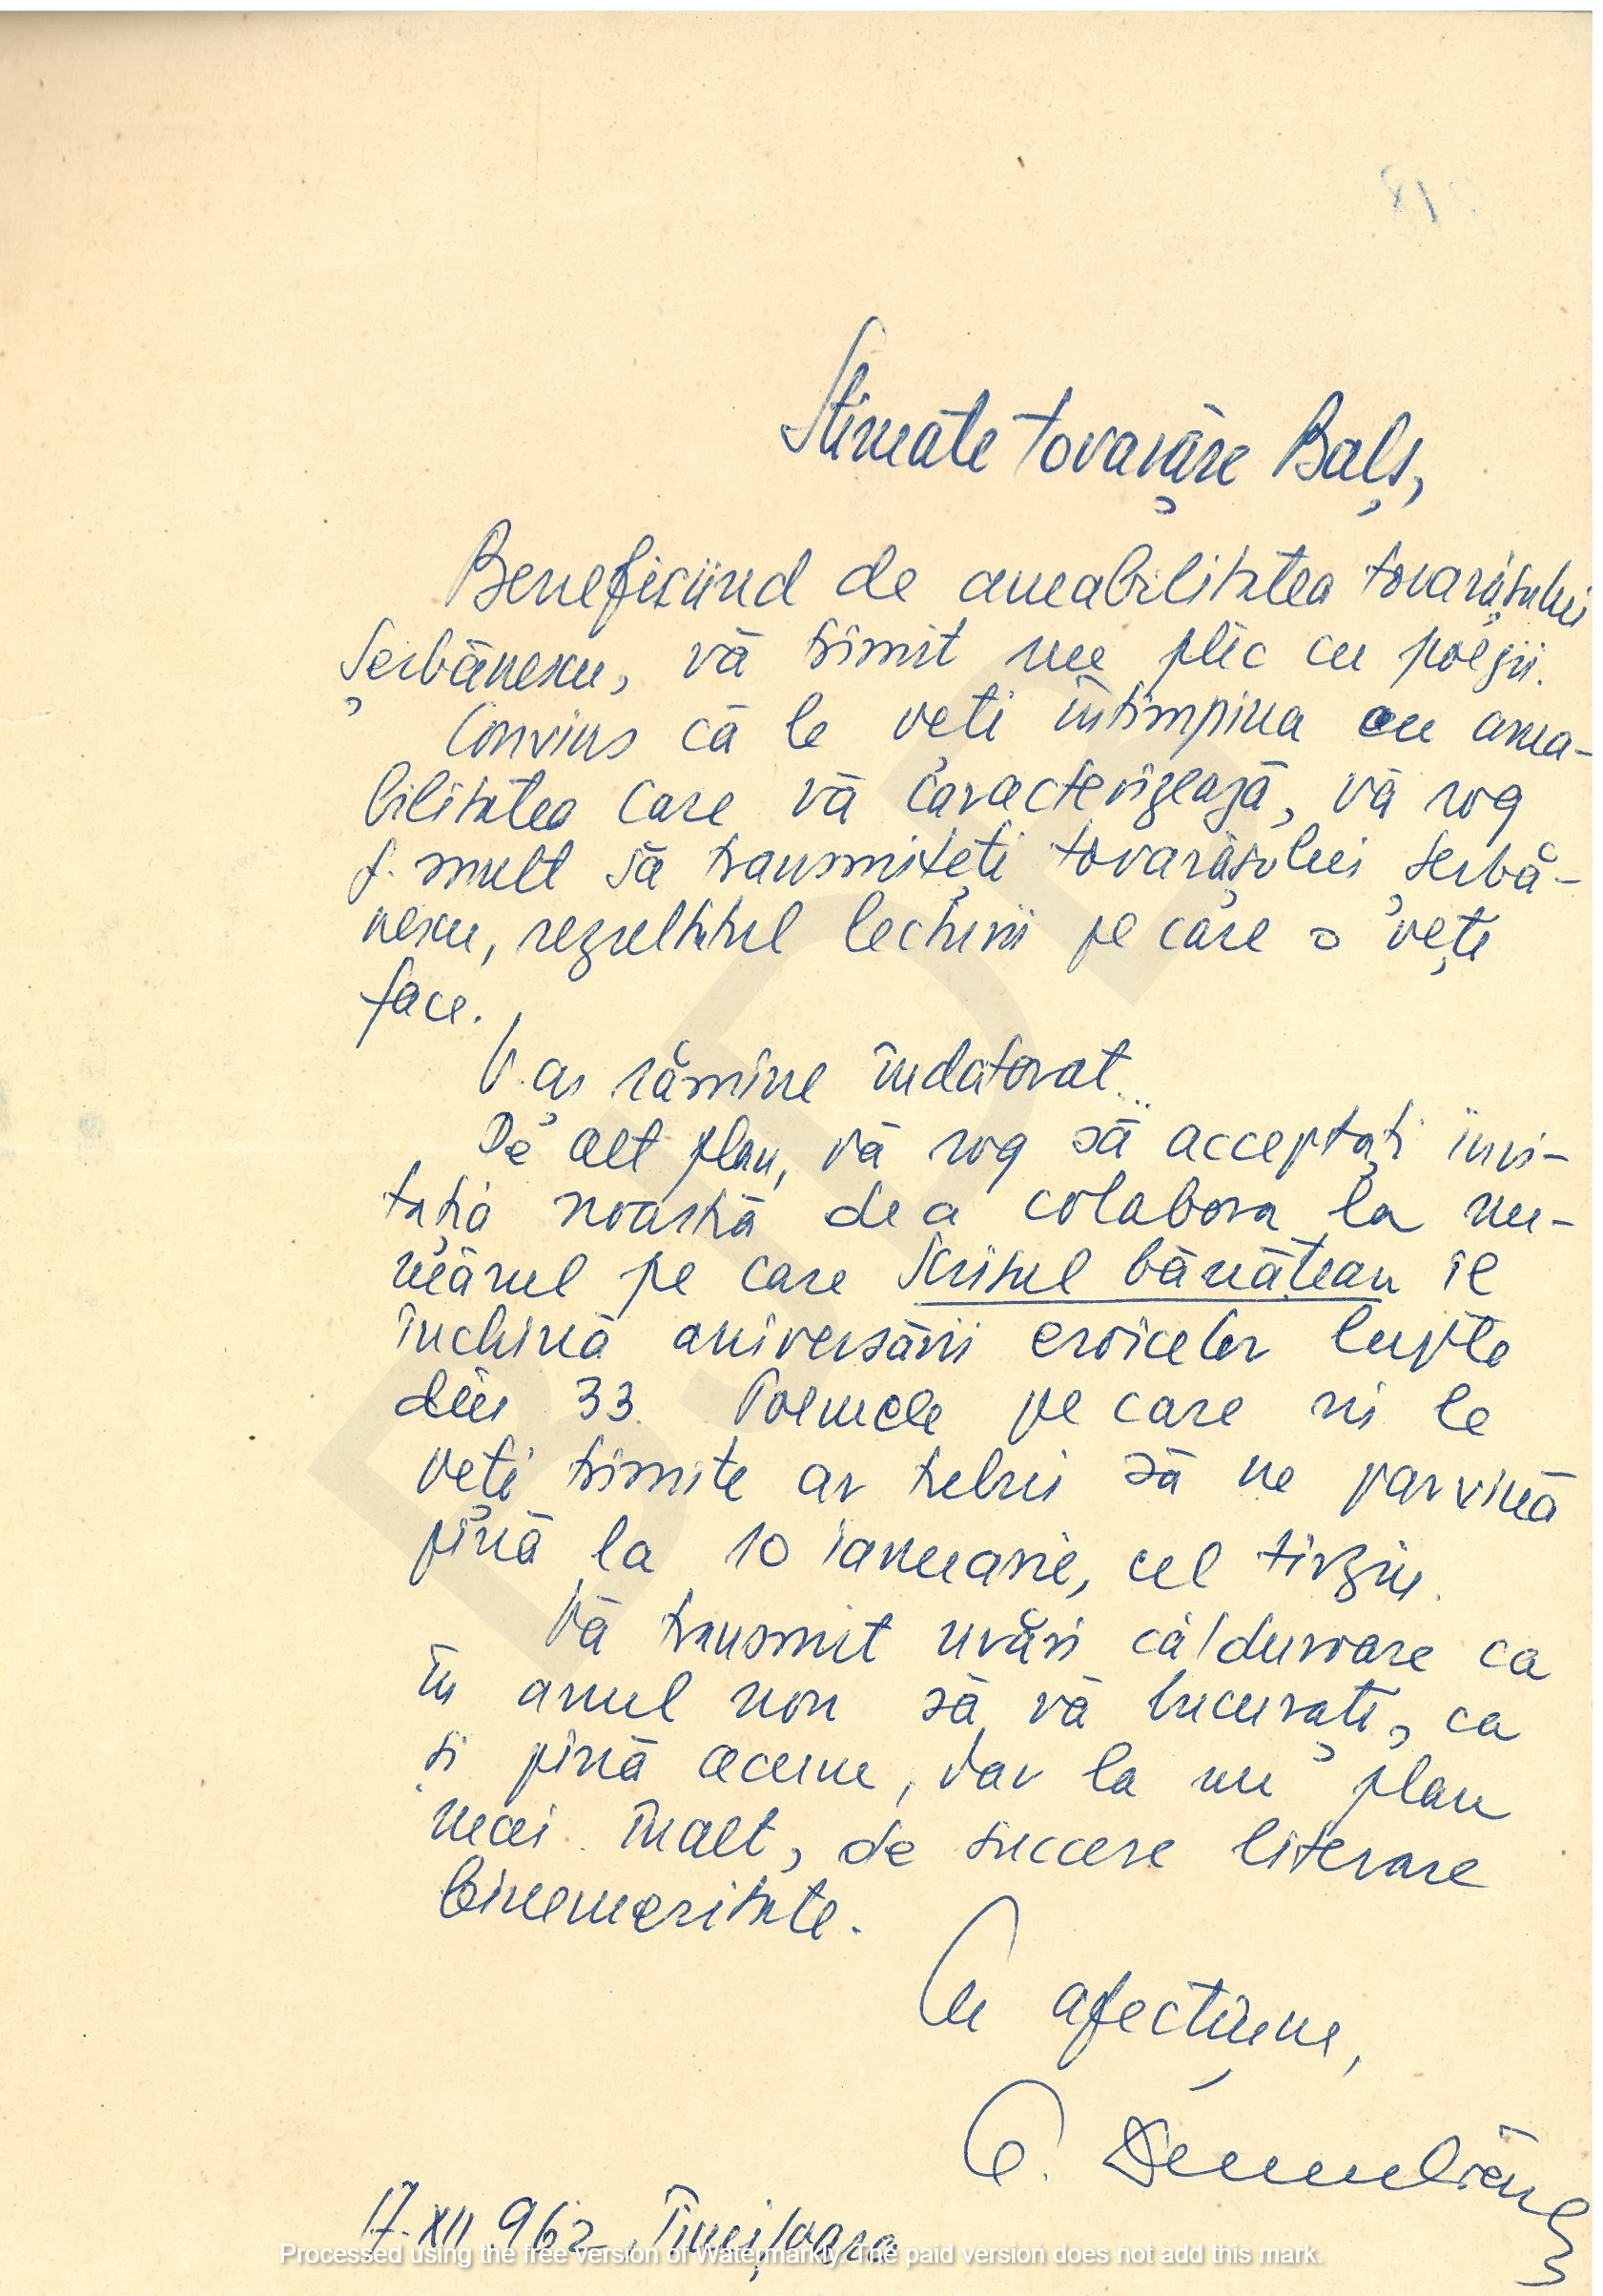 Stimate tovarășe Balș,
Beneficiind de amabilitatea tovarășului
Șerbănescu, vă trimit un plic cu poezii.
Convins că le veți întîmpina cu ama-
bilitatea care vă caracterizează, vă rog
f. mult să transmiteți tovarășului Șerbă-
nescu, rezultatul lecturii pe care o veți
face.
V-aș rămîne îndatorat...
De alt plan, vă rog să acceptați invi-
tația noastră de a colabora la nu-
mărul pe care Scrisul bănățean îl
închină aniversării eroicelor lupte
din 33. Poemele pe care ni le
veți trimite ar trebui să ne parvină
pînă la 10 ianuarie, cel tîrziu.
Vă transmit urări călduroase ca
în anul nou să vă bucurați, ca
și pînă acum, dar la un plan
mai înalt, de succese literare
binemeritate.
Cu afecțiune,
17.XII 962, Timișoara
Processed using the free version of Watermarkly. The paid version does not add this mark.
BJDB